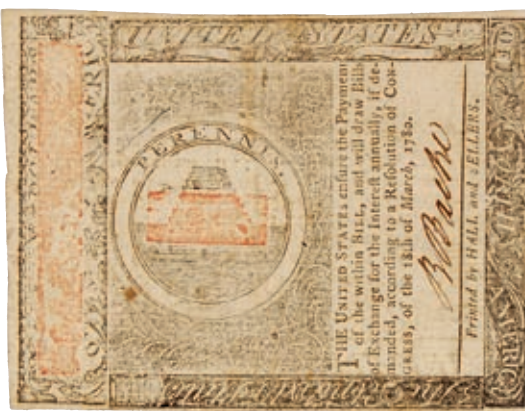 UNITED STATES
OF
PERENNIS.
THE UNITED STATES enſure the Payment
of the within BILL, and will draw Bills
of Exchange for the Intereſt annually, if de-
manded, according to a Reſolution of CON-
GRESS, of the 18th of March, 1780.
Printed by HALL and SELLERS.